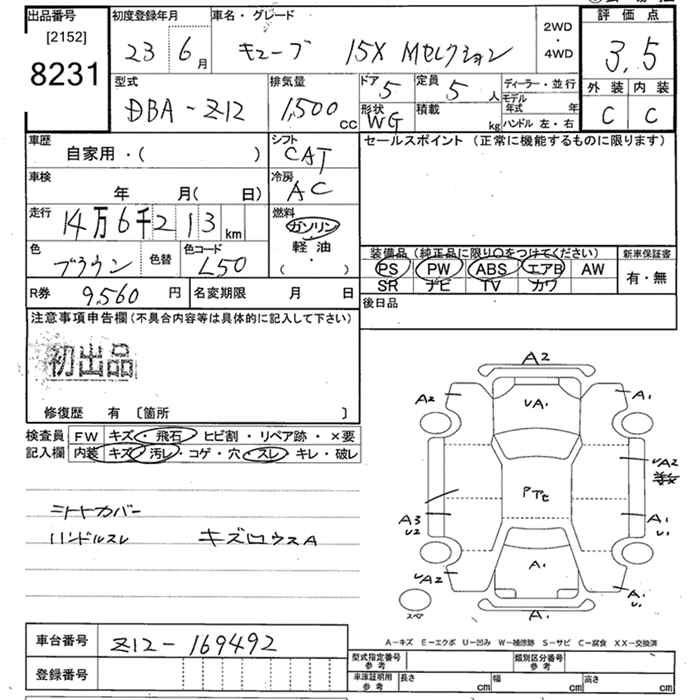 出品番号 初度登録年月 車名・グレード 2WD・4WD 評価点
[2152]
8231
23 6月 キューブ 15X Mセレクション 3.5
型式 排気量 ドア 5 定員 5人 ディーラー・並行 外装 内装
DBA-Z12 1,500cc 形状 WG 積載 kg モデル年式 年 C C
ハンドル 左・右
車歴 自家用・( ) シフト CAT セールスポイント (正常に機能するものに限ります)
車検 年 月( 日) 冷房 AC
走行 14万6千213km 燃料 ガソリン
軽油
( ・ )
色 ブラウン 色替 色コード L50
装備品(純正品に限り○をつけてください) 新車保証書
PS PW ABS エアB AW 有・無
SR ナビ TV カワ
R券 9,560円 名変期限 月 日 後日品
注意事項申告欄(不具合内容等は具体的に記入して下さい)
初出品
修復歴 有 〔箇所 〕
検査員 FW キズ・飛石・ヒビ割・リペア跡・×要
記入欄 内装 キズ・汚レ・コゲ・穴・スレ・キレ・破レ
シートカバー
ハンドルスレ キズロウスA
A2
A2 UA1 A1
UA2
PTE
A3 A1
U2 U1
UA2 A1 A1
U1
スペア A1
A-キズ E-エクボ U-凹み W-補修跡 S-サビ C-腐食 XX-交換済
車台番号 Z12-169492
登録番号
型式指定番号 参考 類別区分番号 参考
車庫証明用 参考 長さ cm 幅 cm 高さ cm